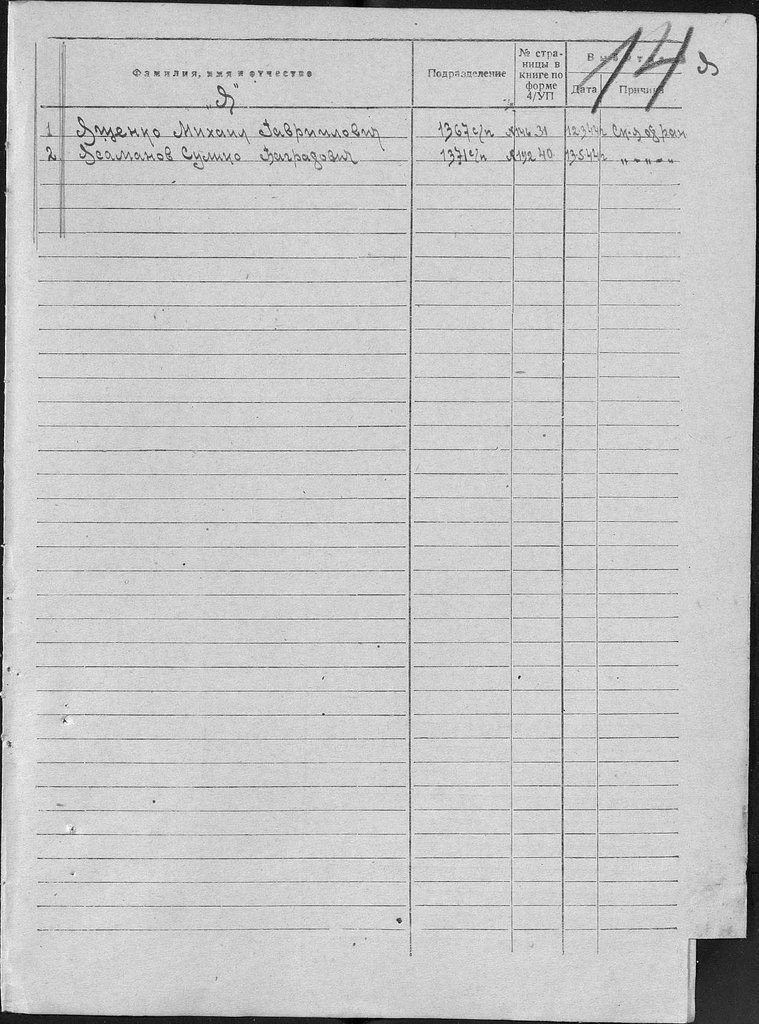 14 Я
Фамилия, имя и отчество
Подразделение
№ стра-
ницы в
книге по
форме
4/УП
Дата
Причина
„Я“
1 Ященко Михаил Гавриилович 1367 с/п №146 31 12.3.44г Ск-я от ран
2 Ясаманов Сулико Баградович 1371 с/п №192 40 13.5.44г „ — „ — „